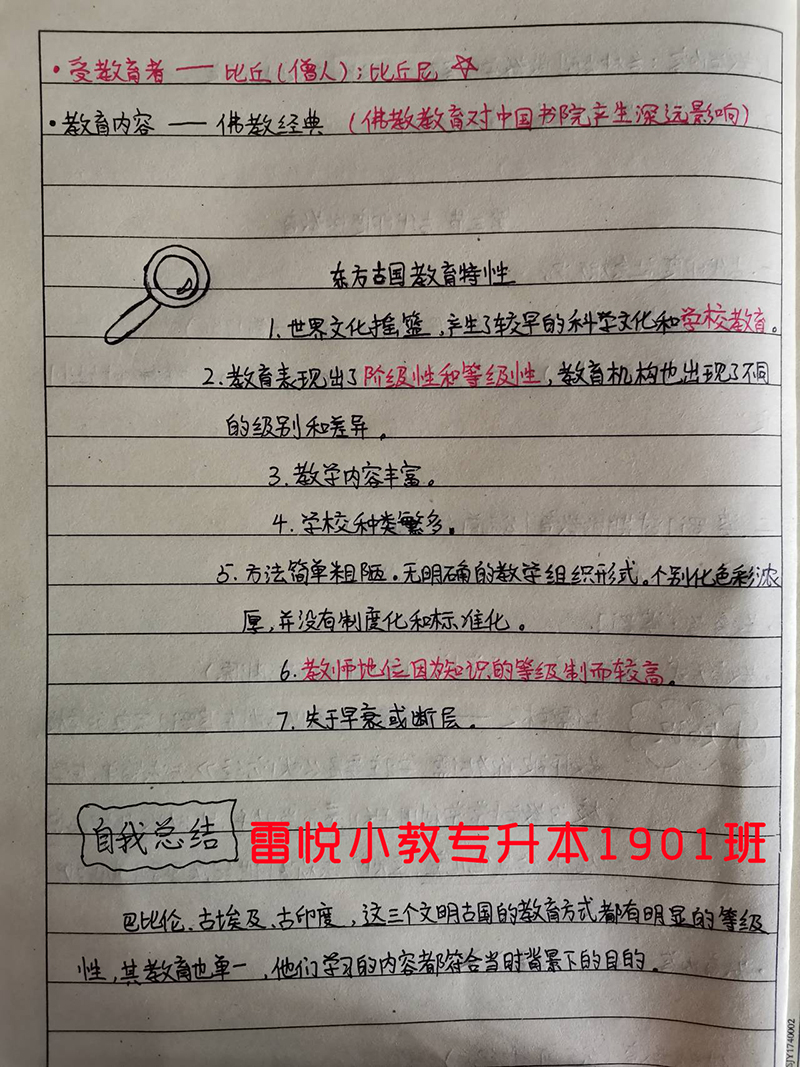 ·受教育者 —— 比丘(僧人);比丘尼 ☆
·教育内容 —— 佛教经典 (佛教教育对中国书院产生深远影响)
东方古国教育特性
1.世界文化摇篮,产生了较早的科学文化和学校教育。
2.教育表现出了阶级性和等级性,教育机构也出现了不同
的级别和差异。
3.教学内容丰富。
4.学校种类繁多。
5.方法简单粗陋.无明确的教学组织形式。个别化色彩浓
厚,并没有制度化和标准化。
6.教师地位因为知识的等级制而较高。
7.失于早衰或断层。
自我总结 雷悦小教专升本1901班
巴比伦、古埃及、古印度,这三个文明古国的教育方式都有明显的等级
性,其教育也单一,他们学习的内容都符合当时背景下的目的。